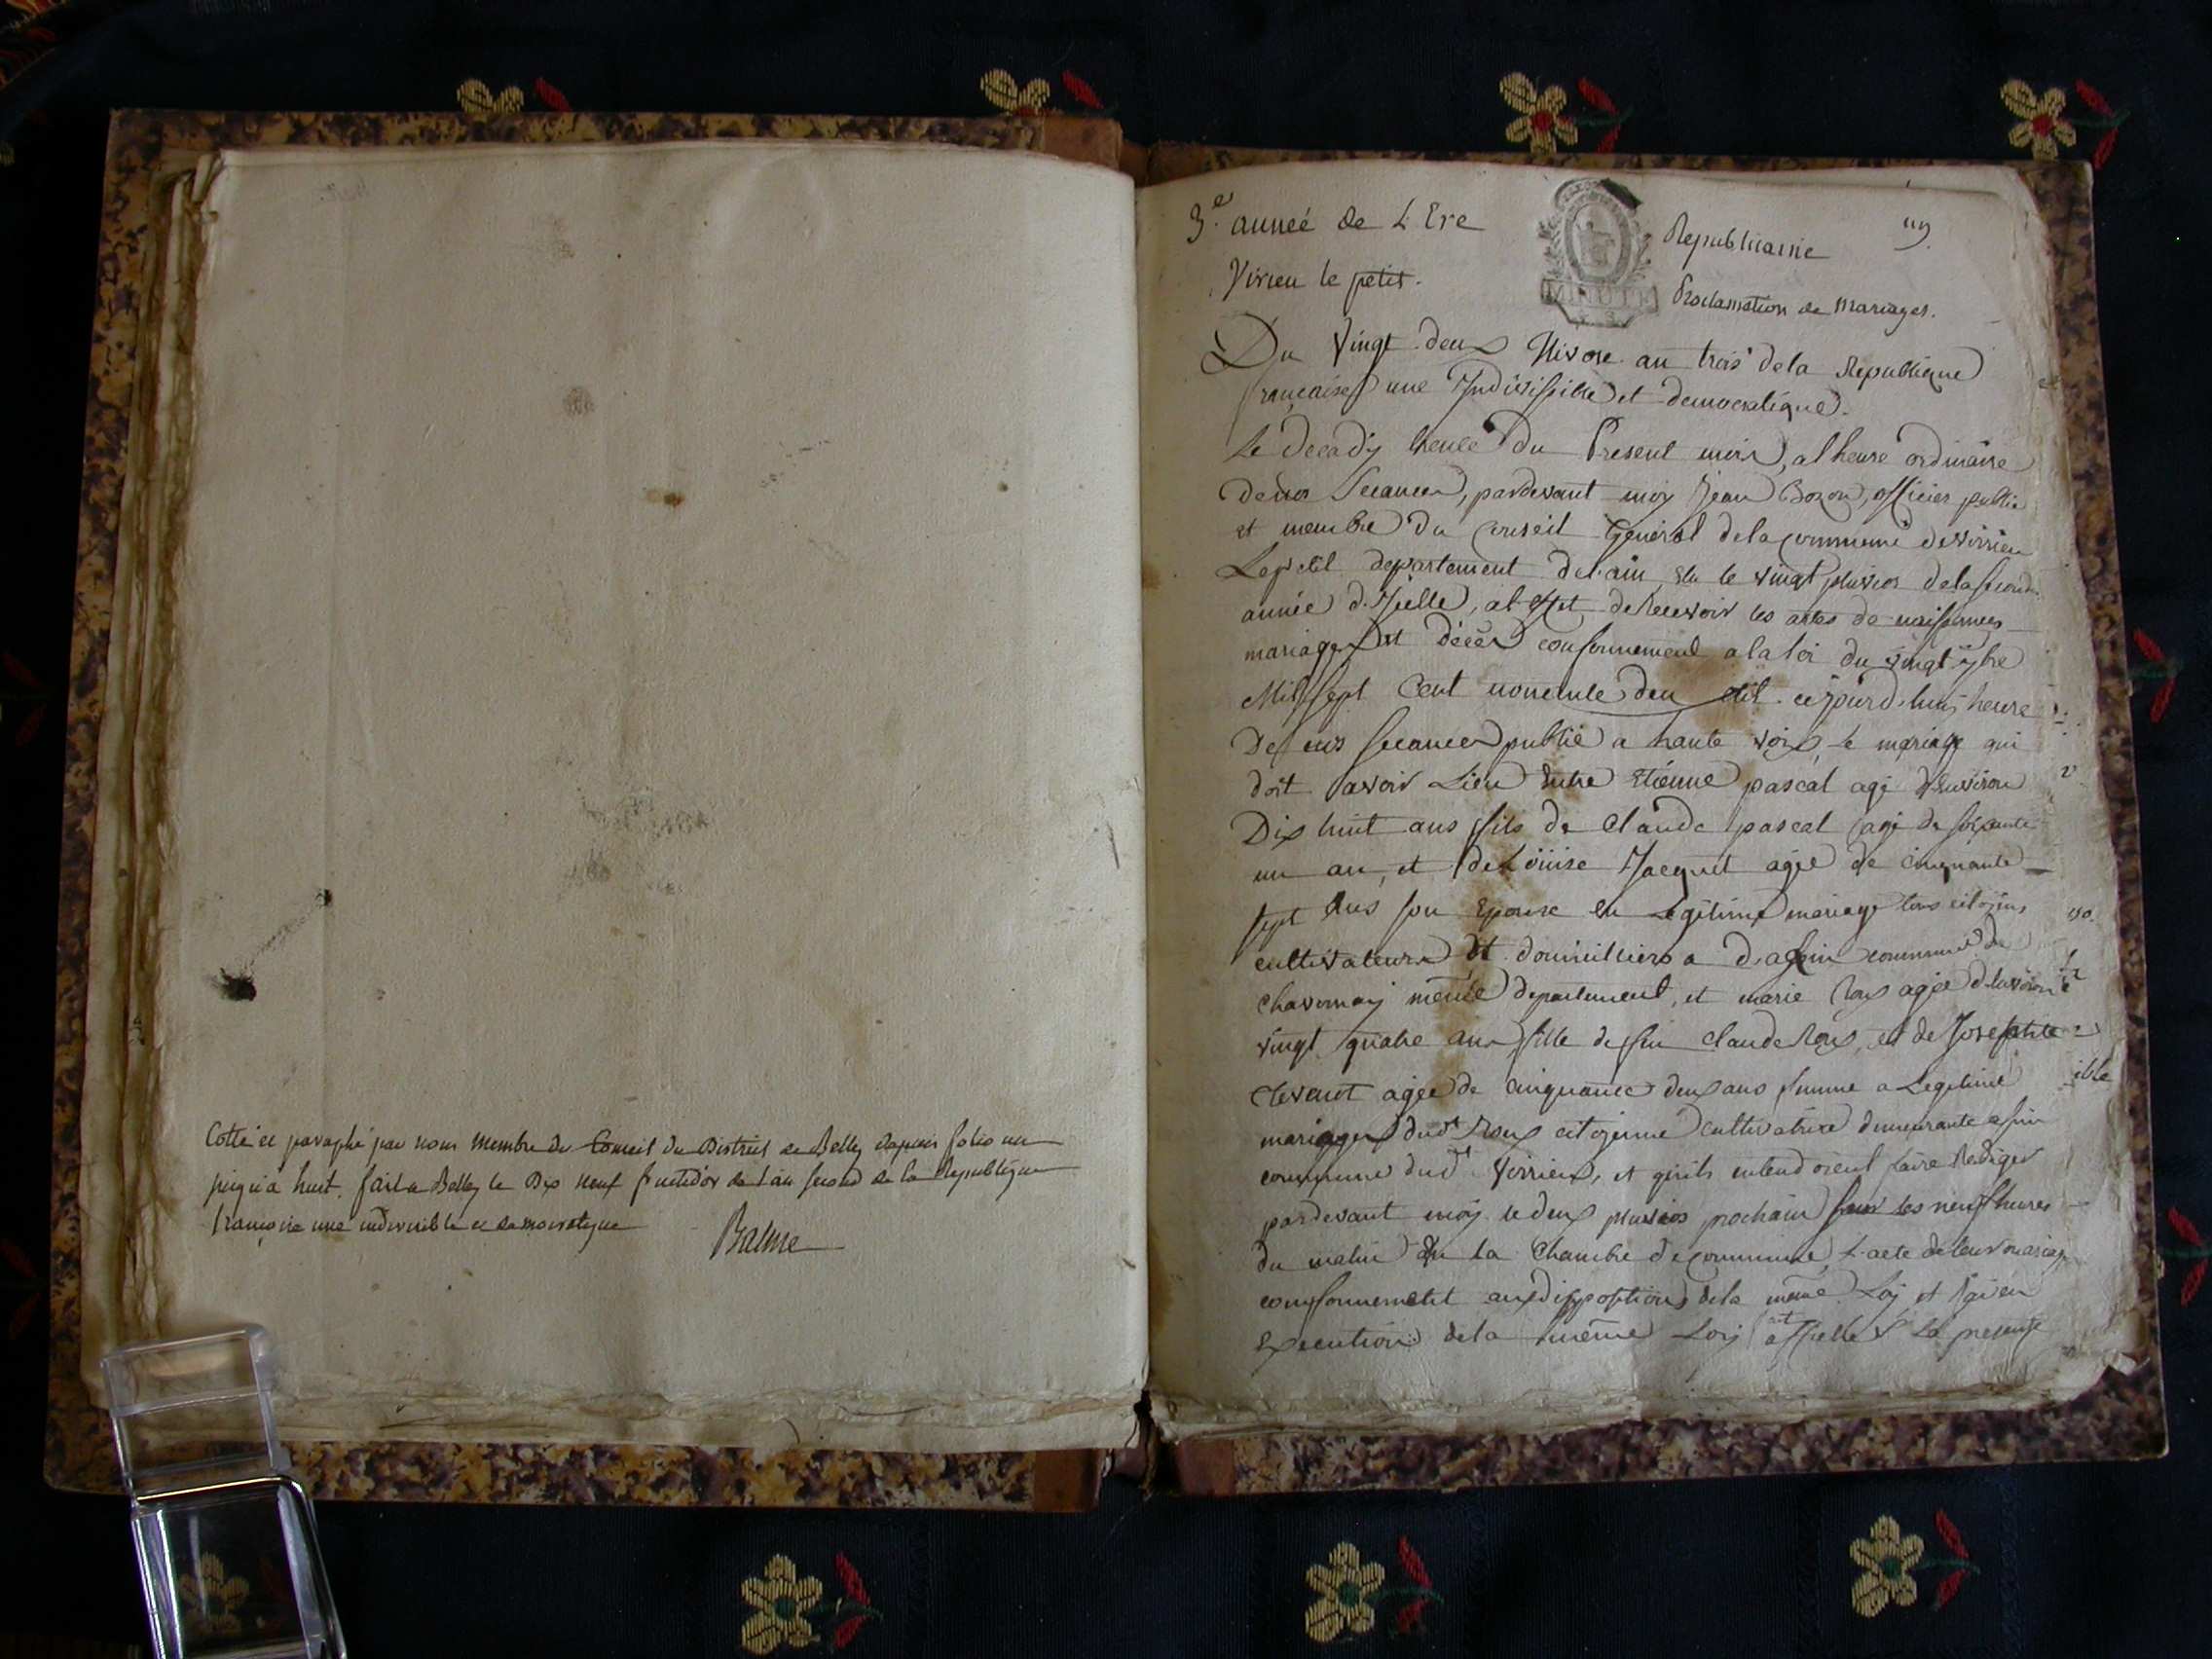 Cotté et paraphé par nous Membre du Conseil du District de Belley depuis folio un
jusqu'a huit. fait a Belley le Dix neuf fructidor de l'an second de la Republique
françoise une indivisible et democratique
Balme
3e. anneé de L'Ere Republicaine
Virieu le petit. Proclamation de Mariages.
MINUTE
Du Vingt deux Nivose an trois de la Republique
francaise une Indivissible et democratique.
Le decady trente du Present mois, a l heure ordinaire
de nos Seeances, pardevant moy Jean Bozon, officier public
et membre du Conseil General de la commune de virrieu
Le petit departement de l'ain, Elu le vingt pluvios de la second
année d'Icelle, a l'effet de Recevoir les actes de naissances
mariages et décès conformement a la loi du vingt 7bre
Mil sept Cent nonente deux a été cejourd'huy heure
De nos seeances publié a haute voix le mariage qui
doit avoir Lieu Entre Etienne pascal agé d'Environ
Dix huit ans fils de Claude pascal agé de soixante
un an, et de Loüise Jacquet agée de cinquante
sept Ans son Epouse En Legitime mariage tous citojens
cultivateurs et domicilliers a commune de
chavornay même departement, et marie Roux agée d'Environ
vingt quatre ans fille de feu Claude Roux, et de Josephte
agée de cinquante deux ans femme a Legitime
mariage dudt Roux citojenne cultivatrice demeurante
commune dud Virrieu, et qu'ils entendoient faire Rediger
pardevant moy le deux pluvios prochain sur les neuf heures
du matin En la Chambre de commune, L'acte de leur mariage
conformement aux dispositions de la même Loy et j'ai en
Execution de la même Loy affiché la presente